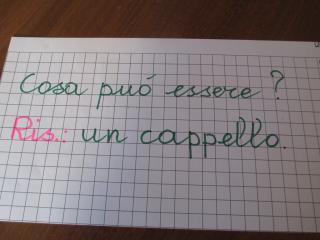 Cosa puó essere?
Ris.: un cappello.